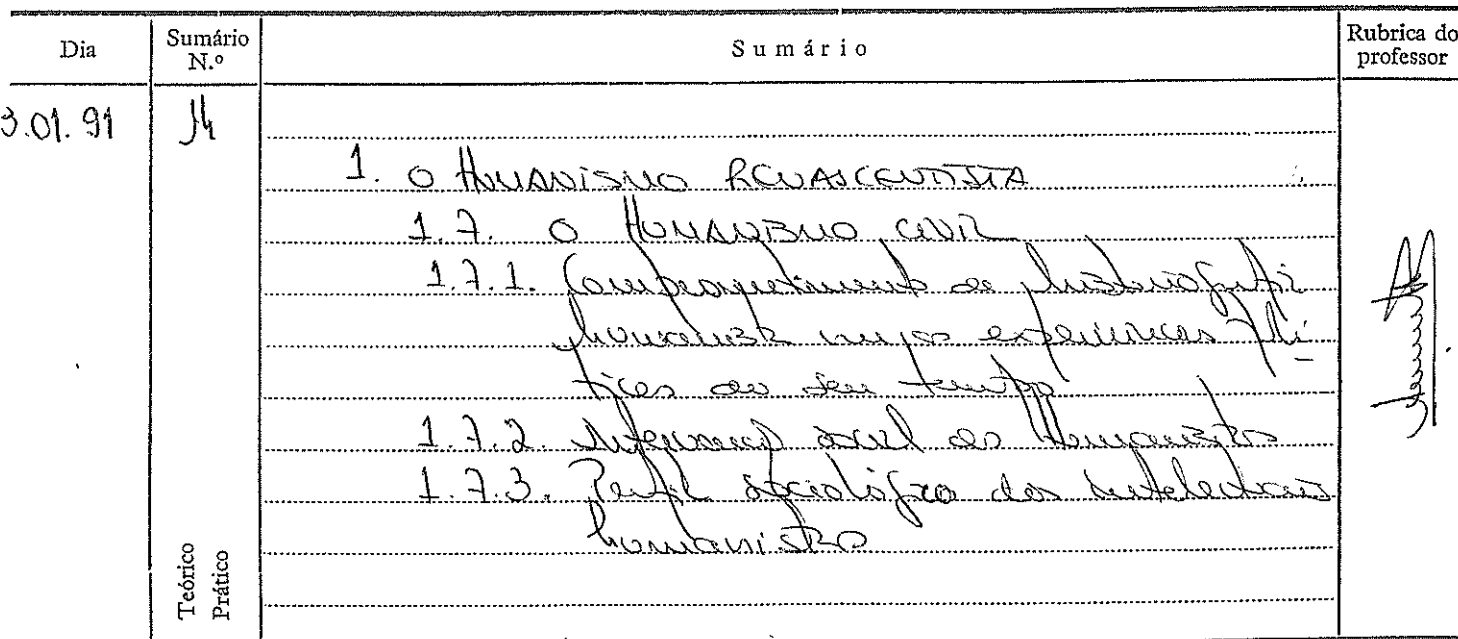 Dia
Sumário N.º
Sumário
Rubrica do professor
3.01.91
1. O HUMANISMO RENASCENTISTA
1.7. O HUMANISMO CIVIL
1.7.1. Comprometimento da historiografia
humanista nas experiências polí-
ticas do seu tempo
1.7.2. Intervenção social dos Humanistas
1.7.3. Perfil sociológico dos intelectuais
humanistas
Teórico
Prático